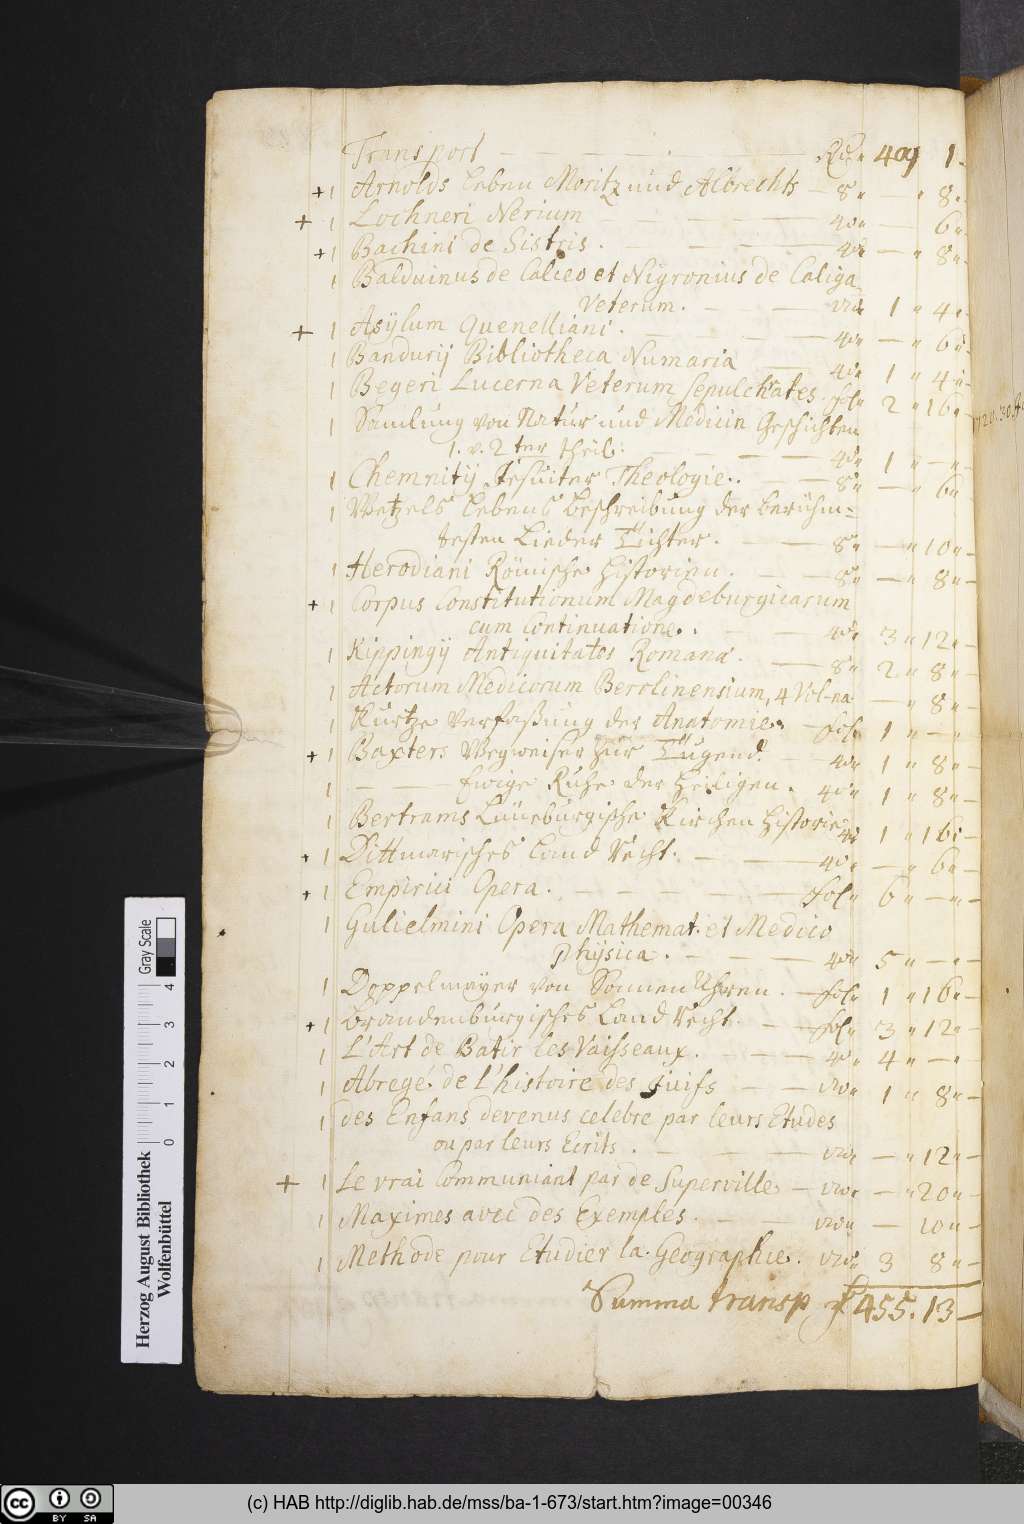 Transport — — — Rth. 409 1.
+ 1 Arnolds Leben Moritz und Albrechts — 8° — " 8 "
+ 1 Lochneri Nerium — — 4to — 6 "
+ 1 Bachini de Sistris . — — 4to — " 8 "
1 Balduinus de Calceo et Nigronius de Caliga
Veterum . — — 1 " 4 "
+ 1 Asylum Quenelliani . — — 4to — " 6 "
1 Bandurij Bibliotheca Numaria — 4to 1 " 4 "
1 Begeri Lucerna Veterum sepulchrales . fol. 2 " 16 "
1 Samlung von Natur und Medicin Geschichten
1. u. 2 ter theil. — — 4to 1 " — " —
1 Chemnitij Jesuiter Theologie . — — 8° — " 6 "
1 Wetzels Lebens Beschreibung der berühm-
testen Lieder Tichter . — — 8° — " 10 "
1 Herodiani Römische Historien . — — 8° — " 8 "
+ 1 Corpus Constitutionum Magdeburgicarum
cum Continuatione . — — 4to 3 " 12 "
1 Kippingij Antiquitates Romanæ . — 8° 2 " 8 "
1 Actorum Medicorum Berolinensium, 4 Vol-na — " 8 "
1 Kurtze Verfaßung der Anatomie . — fol. 1 " — " —
+ 1 Baxters Wegweiser zur Tugend . — 4to 1 " 8 "
1 — — Ewige Ruhe der Heiligen . 4to 1 " 8 "
1 Bertrams Lüneburgische Kirchen Historie 4to 1 " 16 "
+ 1 Dittmarisches Land Recht . — — 4to — " 6 "
+ 1 Empirici Opera . — — — fol. 6 " — " —
1 Gulielmini Opera Mathemat. et Medico
Physica . — — 4to 5 " — " —
1 Doppelmayer von Sonnen Uhren . — fol. 1 " 16 "
+ 1 Brandenburgisches Land Recht . — fol. 3 " 12 "
1 L'Art de Batir les Vaisseaux . — — 4to 4 " — " —
1 Abregé de l'histoire des Juifs — — 1 " 8 "
1 des Enfans devenus celebre par leurs Etudes
ou par leurs Ecrits . — — — " 12 "
+ 1 Le vrai Communiant par de Superville — — " 20 "
1 Maximes avec des Exemples . — — — 10 "
1 Methode pour Etudier la Geographie . 3 8 "
Summa transp 455. 13 —
1720. 30
Herzog August Bibliothek
Wolfenbüttel
0 1 2 3 4
Gray Scale
cc BY SA
(c) HAB http://diglib.hab.de/mss/ba-1-673/start.htm?image=00346